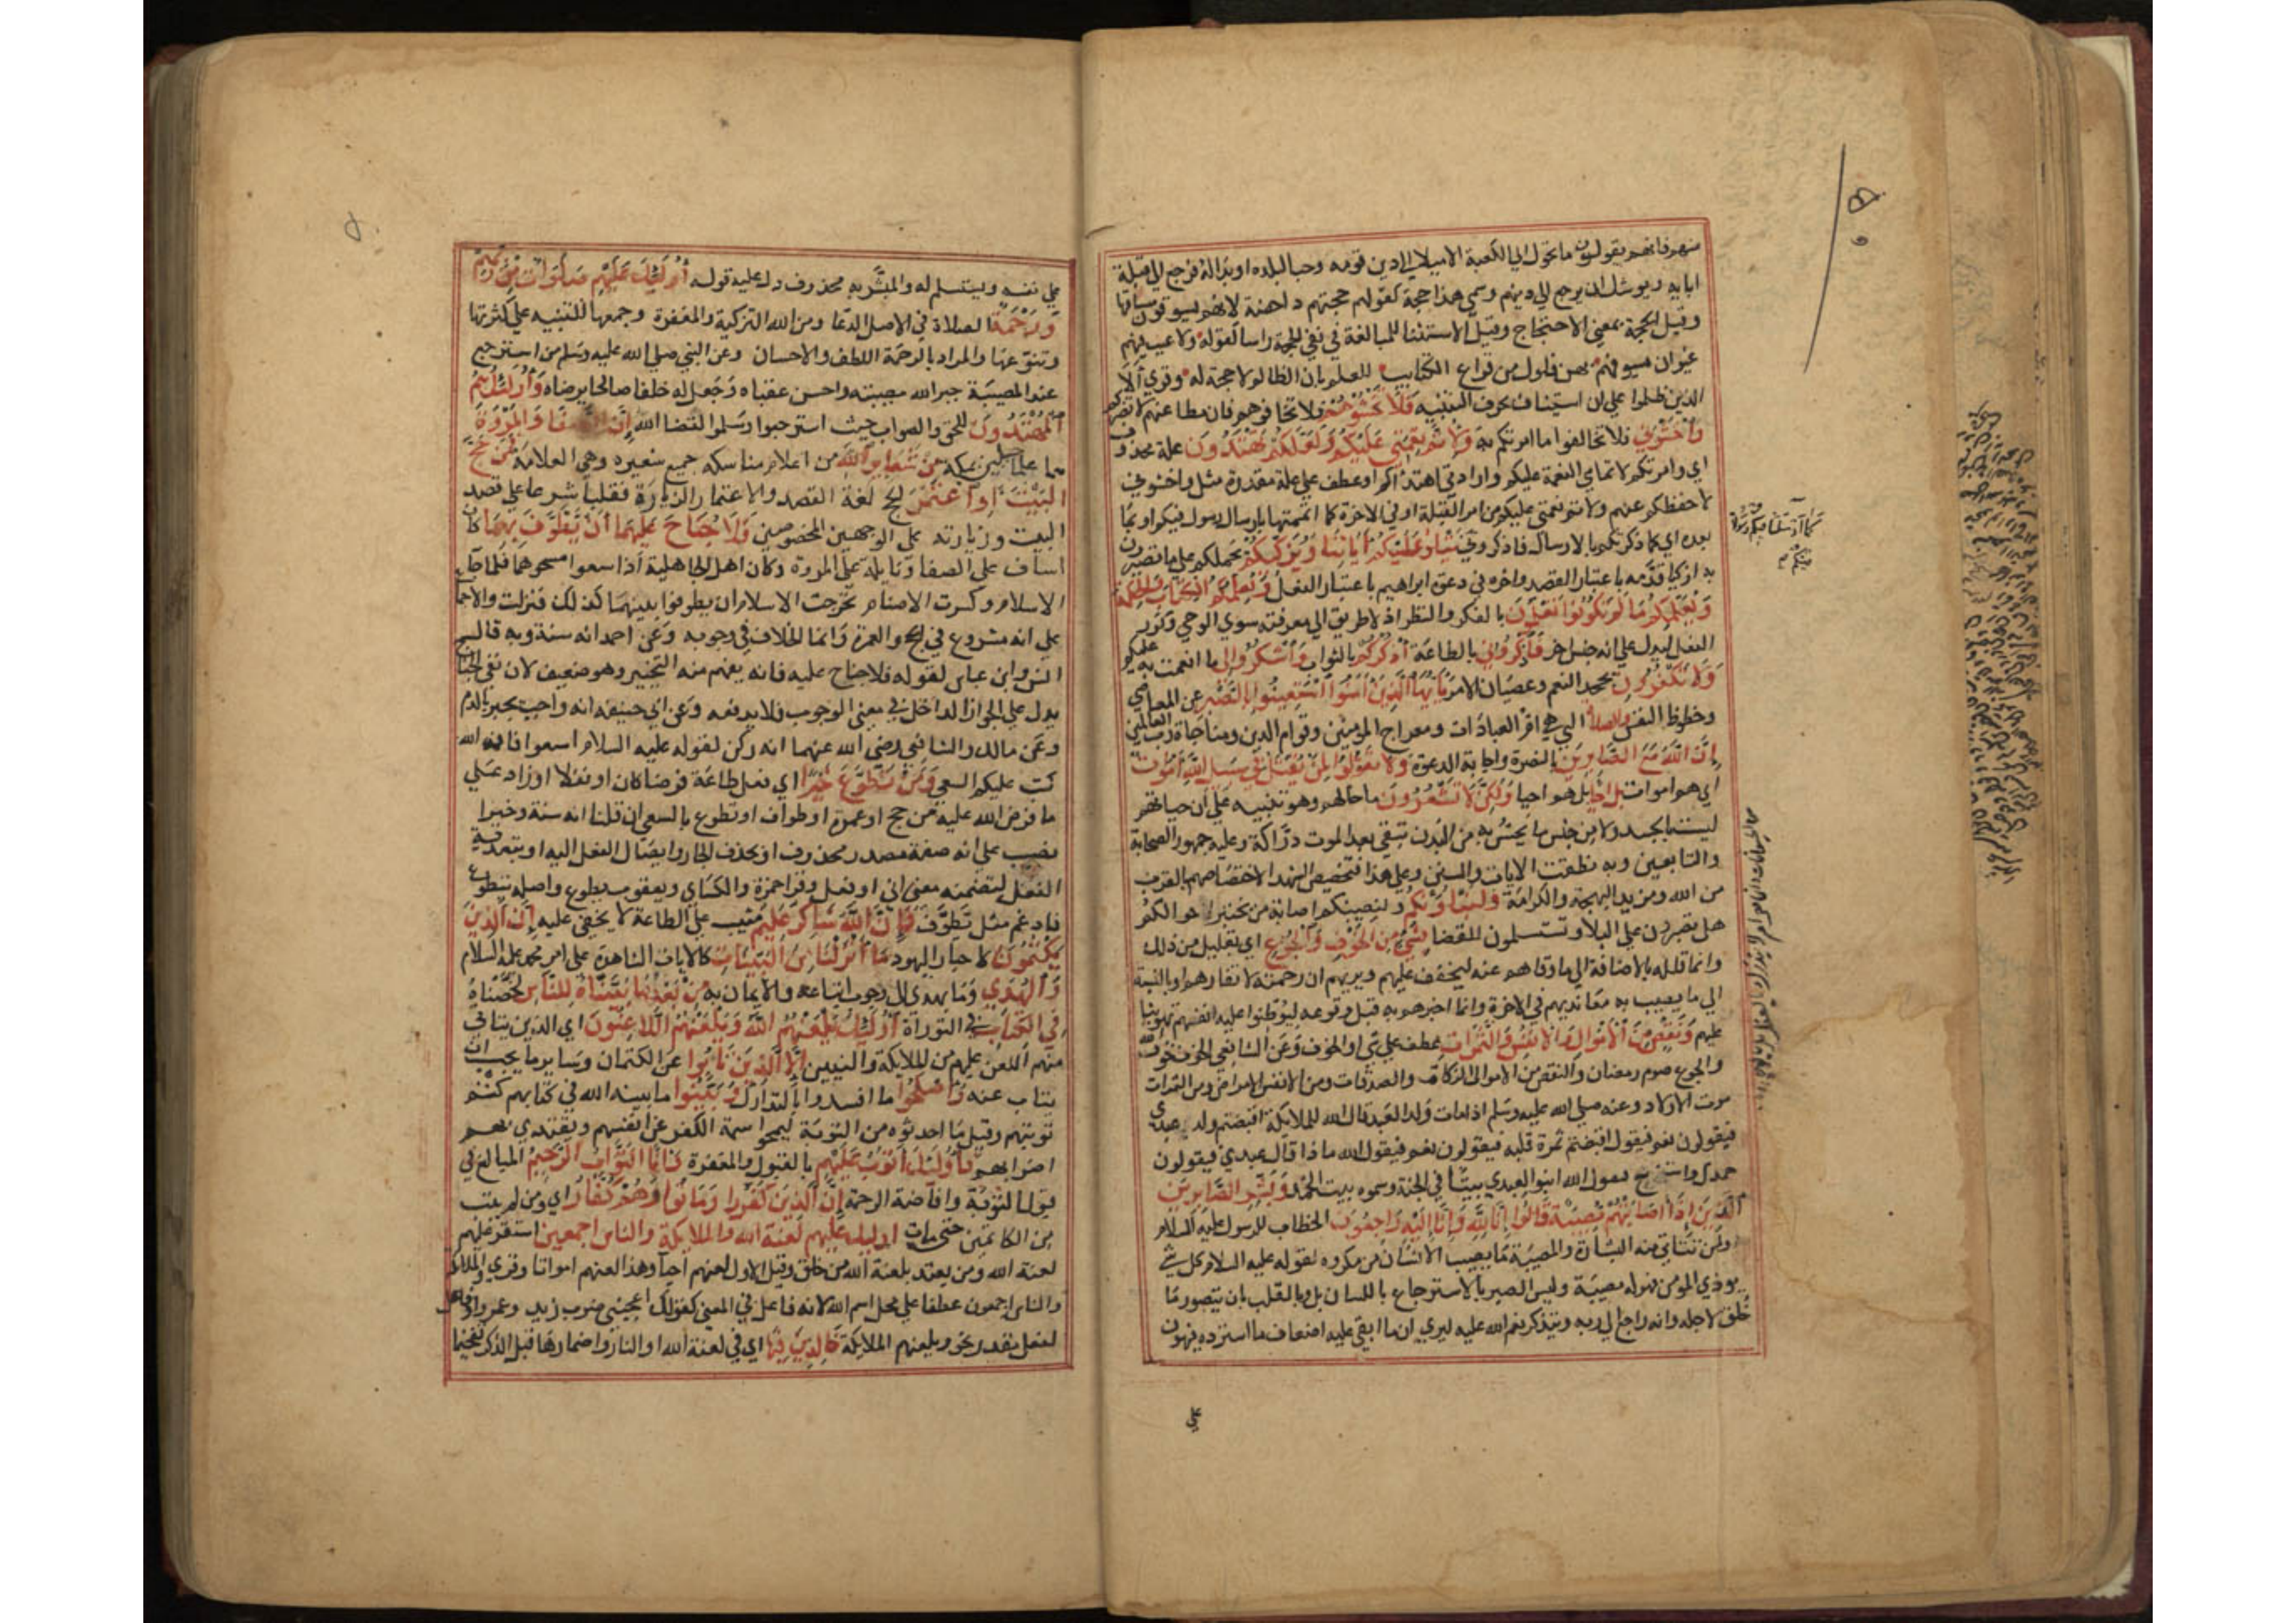 منهم فانهم يقولون ما تحول الي الكعبة الا ميلا الي دين قومه وحبا لبلده او بدا له فرجع الي قبلة
ابايه ويوشك ان يرجع الي دينهم وسمي هذا حجة كقولهم حجتهم داحضة لانهم يسوقون مساقها
وقيل الحجة بمعني الاحتجاج وقيل الاستثنا للمبالغة في نفي الحجة راسا كقوله ولا عيب فيهم
غير ان سيوفهم بهن فلول من قراع الكتايب للعلم بان الظالم لا حجة له وقري ألا
الذين ظلموا علي ان استيناف بحرف التنبيه فَلَا تَخْشَوْهُمْ فلا تخافوهم فان مطاعنهم لا تضركم
وَاخْشَوْنِي فلا تخالفوا ما امرتكم به وَلِأُتِمَّ نِعْمَتِي عَلَيْكُمْ وَلَعَلَّكُمْ تَهْتَدُونَ علة محذوف
اي وامرتكم لاتمامي النعمة عليكم وارادتي اهتداكم او عطف علي علة مقدرة مثل واخشوني
لاحفظكم عنهم ولاتم نعمتي عليكم من امر القبلة او في الاخرة كما اتممتها بارسال رسول فيكم او بما
بعده اي كما ذكرتكم بالارسال فاذكروني يَتْلُو عَلَيْكُمْ آيَاتِنَا وَيُزَكِّيكُمْ يحملكم علي ما تصيرون
به ازكيا قدمه باعتبار القصد واخره في دعوة ابراهيم باعتبار الفعل وَيُعَلِّمُكُمُ الْكِتَابَ وَالْحِكْمَةَ
وَيُعَلِّمُكُمْ مَا لَمْ تَكُونُوا تَعْلَمُونَ بالفكر والنظر اذ لا طريق الي معرفته سوي الوحي وكرر
الفعل ليدل علي انه جنس اخر فَاذْكُرُونِي بالطاعة أَذْكُرْكُمْ بالثواب وَاشْكُرُوا لِي ما انعمت به عليكم
وَلَا تَكْفُرُونِ بجحد النعم وعصيان الامر يَا أَيُّهَا الَّذِينَ آمَنُوا اسْتَعِينُوا بِالصَّبْرِ عن المعاصي
وحظوظ النفس والصلاة التي هي ام العبادات ومعراج المومنين وقوام الدين ومناجاة رب العالمين
إِنَّ اللَّهَ مَعَ الصَّابِرِينَ بالنصرة واجابة الدعوة وَلَا تَقُولُوا لِمَنْ يُقْتَلُ فِي سَبِيلِ اللَّهِ أَمْوَاتٌ
اي هم اموات بل احيا بل هم احيا وَلَكِنْ لَا تَشْعُرُونَ ما حالهم وهو تنبيه علي ان حياتهم
ليست بالجسد ولا من جنس ما يحس به من البدن تبقي بعد الموت دراكة وعليه جمهور الصحابة
والتابعين وبه نطقت الايات والسنن وعلي هذا فتخصيص الشهدا لاختصاصهم بالقرب
من الله ومزيد البهجة والكرامة وَلَنَبْلُوَنَّكُمْ ولنصيبنكم اصابة من يختبر احوالكم
هل تصبرون علي البلا وتستسلمون للقضا بِشَيْءٍ مِنَ الْخَوْفِ وَالْجُوعِ اي بقليل من ذلك
وانما قلله بالاضافة الي ما وقاهم عنه ليخفف عليهم ويريهم ان رحمته لا تفارقهم او بالنسبة
الي ما يصيب به معانديهم في الاخرة وانما اخبرهم به قبل وقوعه ليوطنوا عليه انفسهم
عليهم وَنَقْصٍ مِنَ الْأَمْوَالِ وَالْأَنْفُسِ وَالثَّمَرَاتِ عطف علي شي او الخوف وعن الشافعي الخوف خوف الله
والجوع صوم رمضان والنقص من الاموال الزكاة والصدقات ومن الانفس الامراض ومن الثمرات
موت الاولاد وعنه صلي الله عليه وسلم اذا مات ولد العبد قال الله للملايكة اقبضتم ولد عبدي
فيقولون نعم فيقول اقبضتم ثمرة قلبه فيقولون نعم فيقول الله ماذا قال عبدي فيقولون
حمدك واسترجع فيقول الله ابنوا لعبدي بيتا في الجنة وسموه بيت الحمد وَبَشِّرِ الصَّابِرِينَ
الَّذِينَ إِذَا أَصَابَتْهُمْ مُصِيبَةٌ قَالُوا إِنَّا لِلَّهِ وَإِنَّا إِلَيْهِ رَاجِعُونَ الخطاب للرسول عليه السلام
ولمن تتاتي منه البشارة والمصيبة ما يصيب الانسان من مكروه لقوله عليه السلام كل شي
يوذي المومن فهو له مصيبة وليس الصبر بالاسترجاع باللسان بل وبالقلب بان يتصور ما
خلق لاجله وانه راجع الي ربه ويتذكر نعم الله عليه ليري ان ما ابقي عليه اضعاف ما استرده فيهون
علي
كَمَا أَرْسَلْنَا فِيكُمْ رَسُولًا
مِنْكُمْ
علي نفسه ويستسلم له والمبشر به محذوف دل عليه قوله أُولَئِكَ عَلَيْهِمْ صَلَوَاتٌ مِنْ رَبِّهِمْ
وَرَحْمَةٌ الصلاة في الاصل الدعا ومن الله التزكية والمغفرة وجمعها للتنبيه علي كثرتها
وتنوعها والمراد بالرحمة اللطف والاحسان وعن النبي صلي الله عليه وسلم من استرجع
عند المصيبة جبر الله مصيبته واحسن عقباه وجعل له خلفا صالحا يرضاه وَأُولَئِكَ هُمُ
الْمُهْتَدُونَ للحق والصواب حيث استرجعوا وسلموا لقضا الله إِنَّ الصَّفَا وَالْمَرْوَةَ
هما علما جبلين بمكة مِنْ شَعَائِرِ اللَّهِ من اعلام مناسكه جمع شعيره وهي العلامة فَمَنْ حَجَّ
الْبَيْتَ أَوِ اعْتَمَرَ الحج لغة القصد والاعتمار الزيارة فغلبا شرعا علي قصد
البيت وزيارته علي الوجهين المخصوصين فَلَا جُنَاحَ عَلَيْهِ أَنْ يَطَّوَّفَ بِهِمَا كان
اساف علي الصفا ونايلة علي المروة وكان اهل الجاهلية اذا سعوا مسحوهما فلما جا
الاسلام وكسرت الاصنام تحرجت الاسلام ان يطوفوا بينهما كذلك فنزلت والاجماع
علي انه مشروع في الحج والعمرة وانما الخلاف في وجوبه وعن احمد انه سنة وبه قال
انس وابن عباس لقوله فلا جناح عليه فانه يفهم منه التخيير وهو ضعيف لان نفي الجناح
يدل علي الجواز الداخل في معني الوجوب فلا يدفعه وعن ابي حنيفة انه واجب يجبر بالدم
وعن مالك والشافعي رضي الله عنهما انه ركن لقوله عليه السلام اسعوا فان الله
كتب عليكم السعي وَمَنْ تَطَوَّعَ خَيْرًا اي فعل طاعة فرضا كان او نفلا او زاد علي
ما فرض الله عليه من حج او عمرة او طواف او تطوع بالسعي ان قلنا انه سنة وخيرا
نصب علي انه صفة مصدر محذوف او بحذف الجار وايصال الفعل اليه او بتعدية
الفعل لتضمنه معني اتي او فعل وقرا حمزة والكساي ويعقوب يطوع واصله يتطوع
فادغم مثل تَطَوَّفَ فَإِنَّ اللَّهَ شَاكِرٌ عَلِيمٌ مثيب علي الطاعة لا يخفي عليه إِنَّ الَّذِينَ
يَكْتُمُونَ كاحبار اليهود مَا أَنْزَلْنَا مِنَ الْبَيِّنَاتِ كالايات الشاهدة علي امر محمد عليه السلام
وَالْهُدَى وما يهدي الي وجوب اتباعه والايمان به مِنْ بَعْدِ مَا بَيَّنَّاهُ لِلنَّاسِ لخصناه
فِي الْكِتَابِ في التوراة أُولَئِكَ يَلْعَنُهُمُ اللَّهُ وَيَلْعَنُهُمُ اللَّاعِنُونَ اي الذين يتاتي
منهم اللعن عليهم من الملايكة والنبيين إِلَّا الَّذِينَ تَابُوا عن الكتمان وساير ما يجب ان
يتاب عنه وَأَصْلَحُوا ما افسدوا بالتدارك وَبَيَّنُوا ما بينه الله في كتابهم
توبتهم وقيل ما احدثوه من التوبة ليمحوا سمة الكفر عن انفسهم ويقتدي بهم
اضرابهم فَأُولَئِكَ أَتُوبُ عَلَيْهِمْ بالقبول والمغفرة وَأَنَا التَّوَّابُ الرَّحِيمُ المبالغ في
قبول التوبة وافاضة الرحمة إِنَّ الَّذِينَ كَفَرُوا وَمَاتُوا وَهُمْ كُفَّارٌ اي ومن لم يتب
من الكاتمين حتي مات اوليك عليهم لعنة الله والملايكة والناس اجمعين استقر عليهم
لعنة الله ومن يعتد بلعنة الله من خلقه وقيل الاول لعنهم احيا وهذا لعنهم امواتا وقري والملايكة
والناس اجمعون عطفا علي محل اسم الله لانه فاعل في المعني كقولك اعجبني ضرب زيد وعمرو او فاعل
لفعل مقدر نحو ويلعنهم الملايكة خَالِدِينَ فِيهَا اي في لعنة الله او النار واضمارها قبل الذكر تفخيما